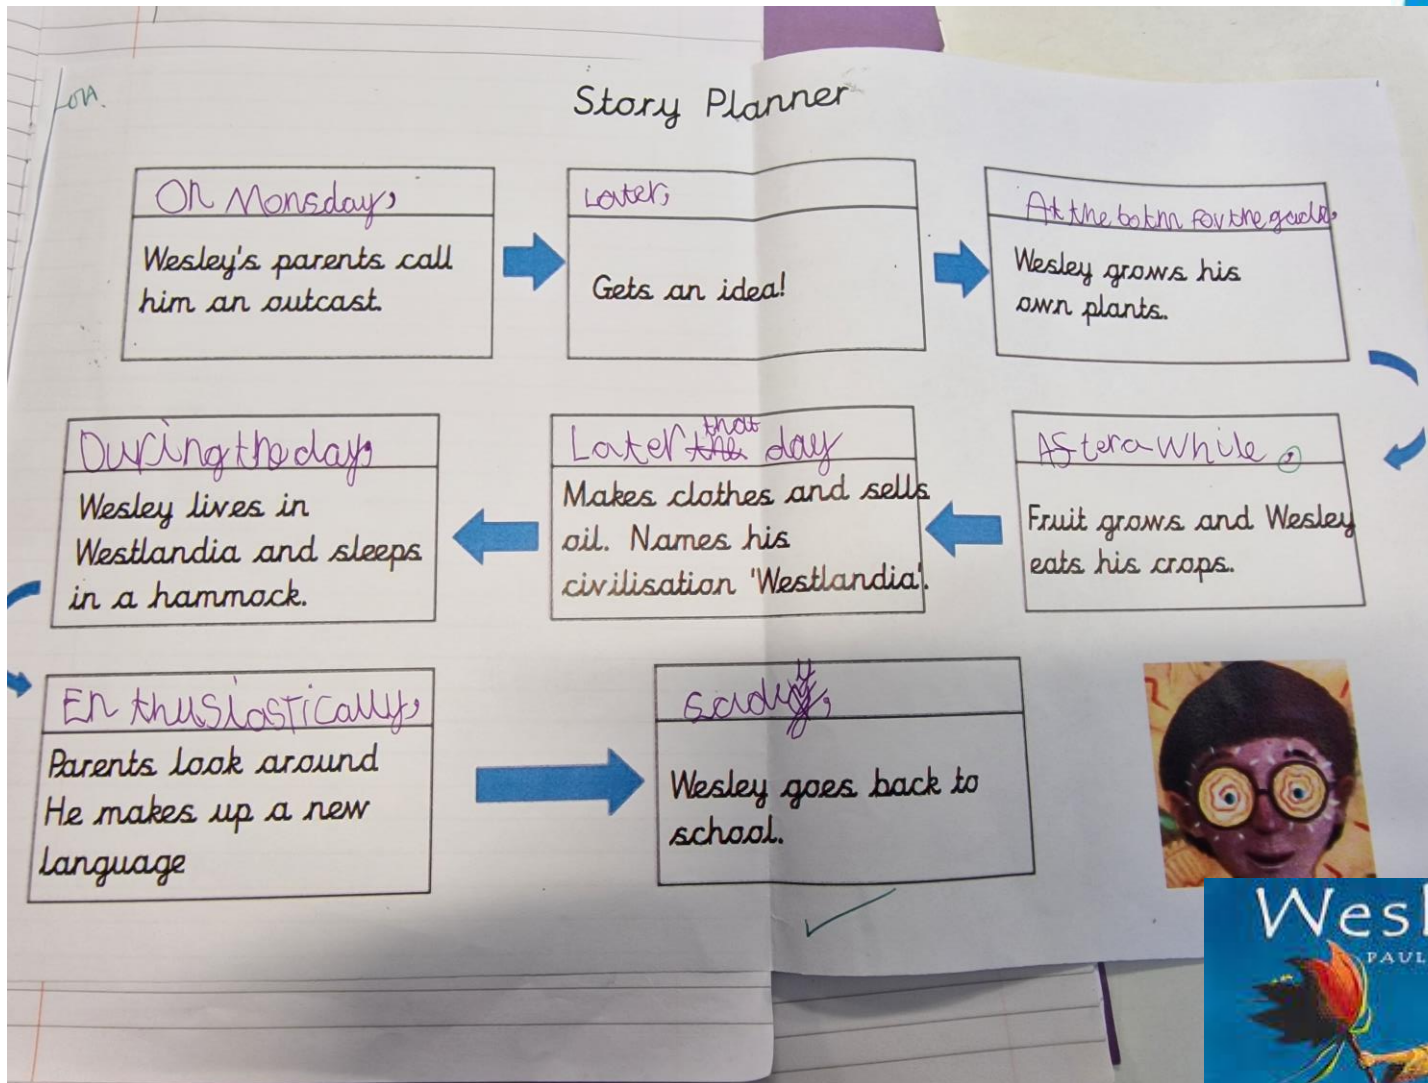 Story Planner
On Monsday,
Wesley's parents call
him an outcast.
Later,
Gets an idea!
At the botnn fov the gadn,
Wesley grows his
own plants.
After a While,
Fruit grows and Wesley
eats his crops.
Later the that day
Makes clothes and sells
oil. Names his
civilisation 'Westlandia'.
During the day,
Wesley lives in
Westlandia and sleeps
in a hammock.
Enthusiastically,
Parents look around
He makes up a new
language
Sadly,
Wesley goes back to
school.
Wesl
PAUL